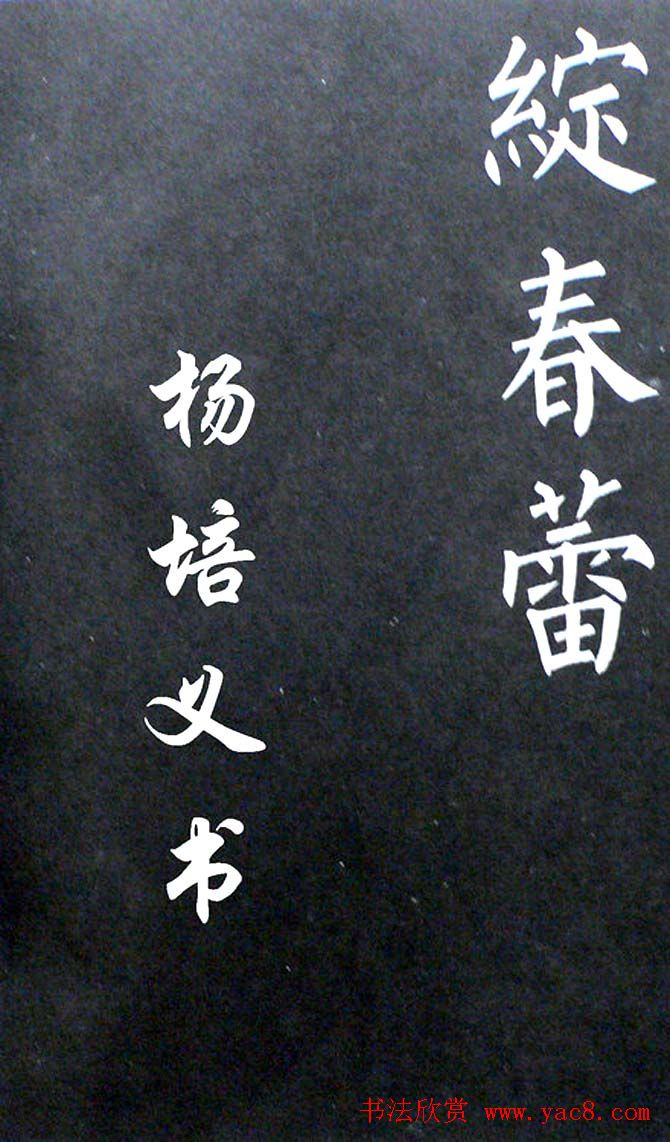 綻春蕾
杨培义书
书法欣赏 www.yac8.com